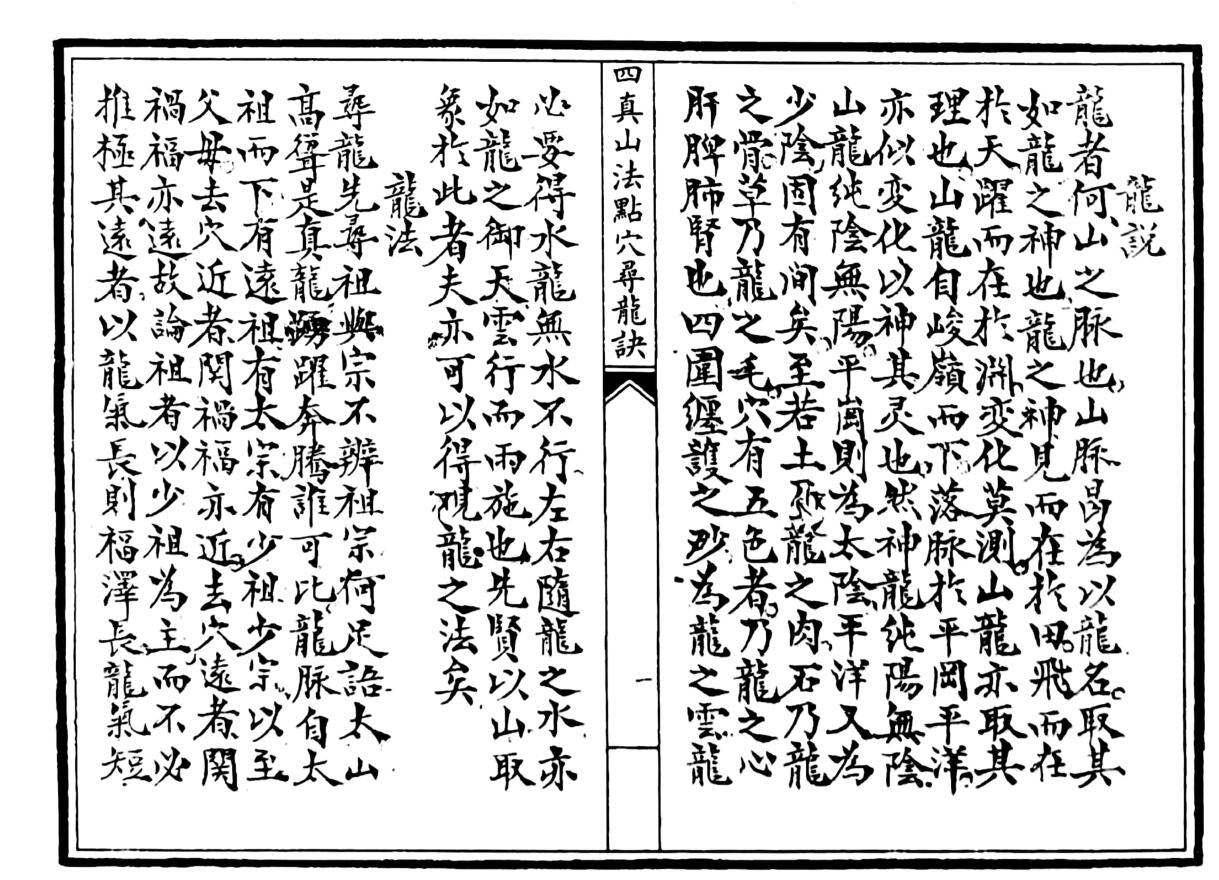 龍説
龍者何山之脉也山脉曷為以龍名取其
如龍之神也龍之神見而在於田飛而在
於天躍而在於淵変化莫測山龍亦取其
理也山龍自峻嶺而下落脉於平岡平洋
亦似変化以神其灵也然神龍純陽無陰
山龍純陰無陽平崗則為太陰平洋又為
少陰固有间矣至若土乃龍之肉石乃龍
之骨草乃龍之毛穴有五色者乃龍之心
肝脾肺腎也四圍纏護之砂為龍之雲龍
四真山法點穴尋龍訣
一
必要得水龍無水不行左右隨龍之水亦
如龍之御天雲行而雨施也先賢以山取
象於此者夫亦可以得觀龍之法矣
龍法
尋龍先尋祖與宗不辨祖宗何足語太山
高聳是真龍踴躍奔騰誰可比龍脉自太
祖而下有遠祖有太宗有少祖少宗以至
父母去穴近者関禍福亦近去穴遠者関
禍福亦遠故論祖者以少祖為主而不必
推極其遠者以龍氣長則福澤長龍氣短